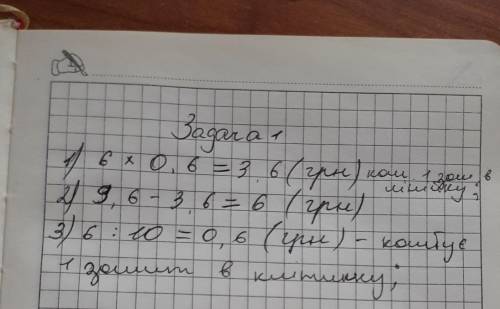 Задача 1
1) 6 × 0,6 = 3,6 (грн) кош. 1 зош. в
лінійку;
2) 9,6 - 3,6 = 6 (грн)
3) 6 : 10 = 0,6 (грн) - коштує
1 зошит в клітинку;